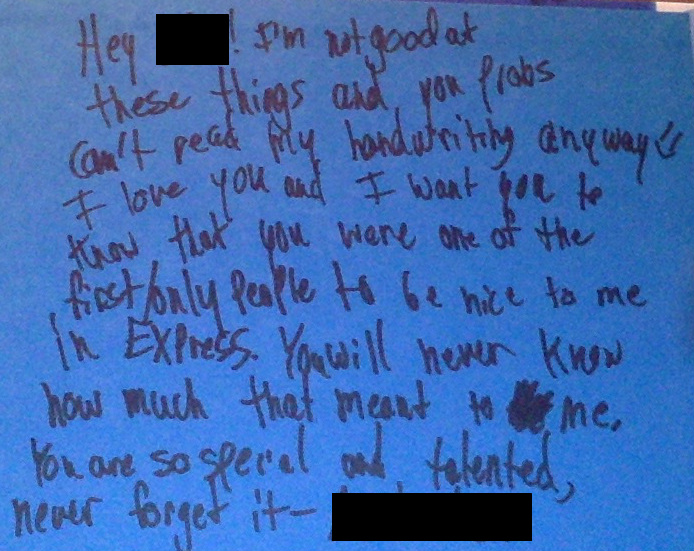 Hey ! I'm not good at
these things and you probs
can't read my handwriting anyway
I love you and I want you to
know that you were one of the
first/only people to be nice to me
in Express. You will never know
how much that meant to me.
You are so special and talented,
never forget it-